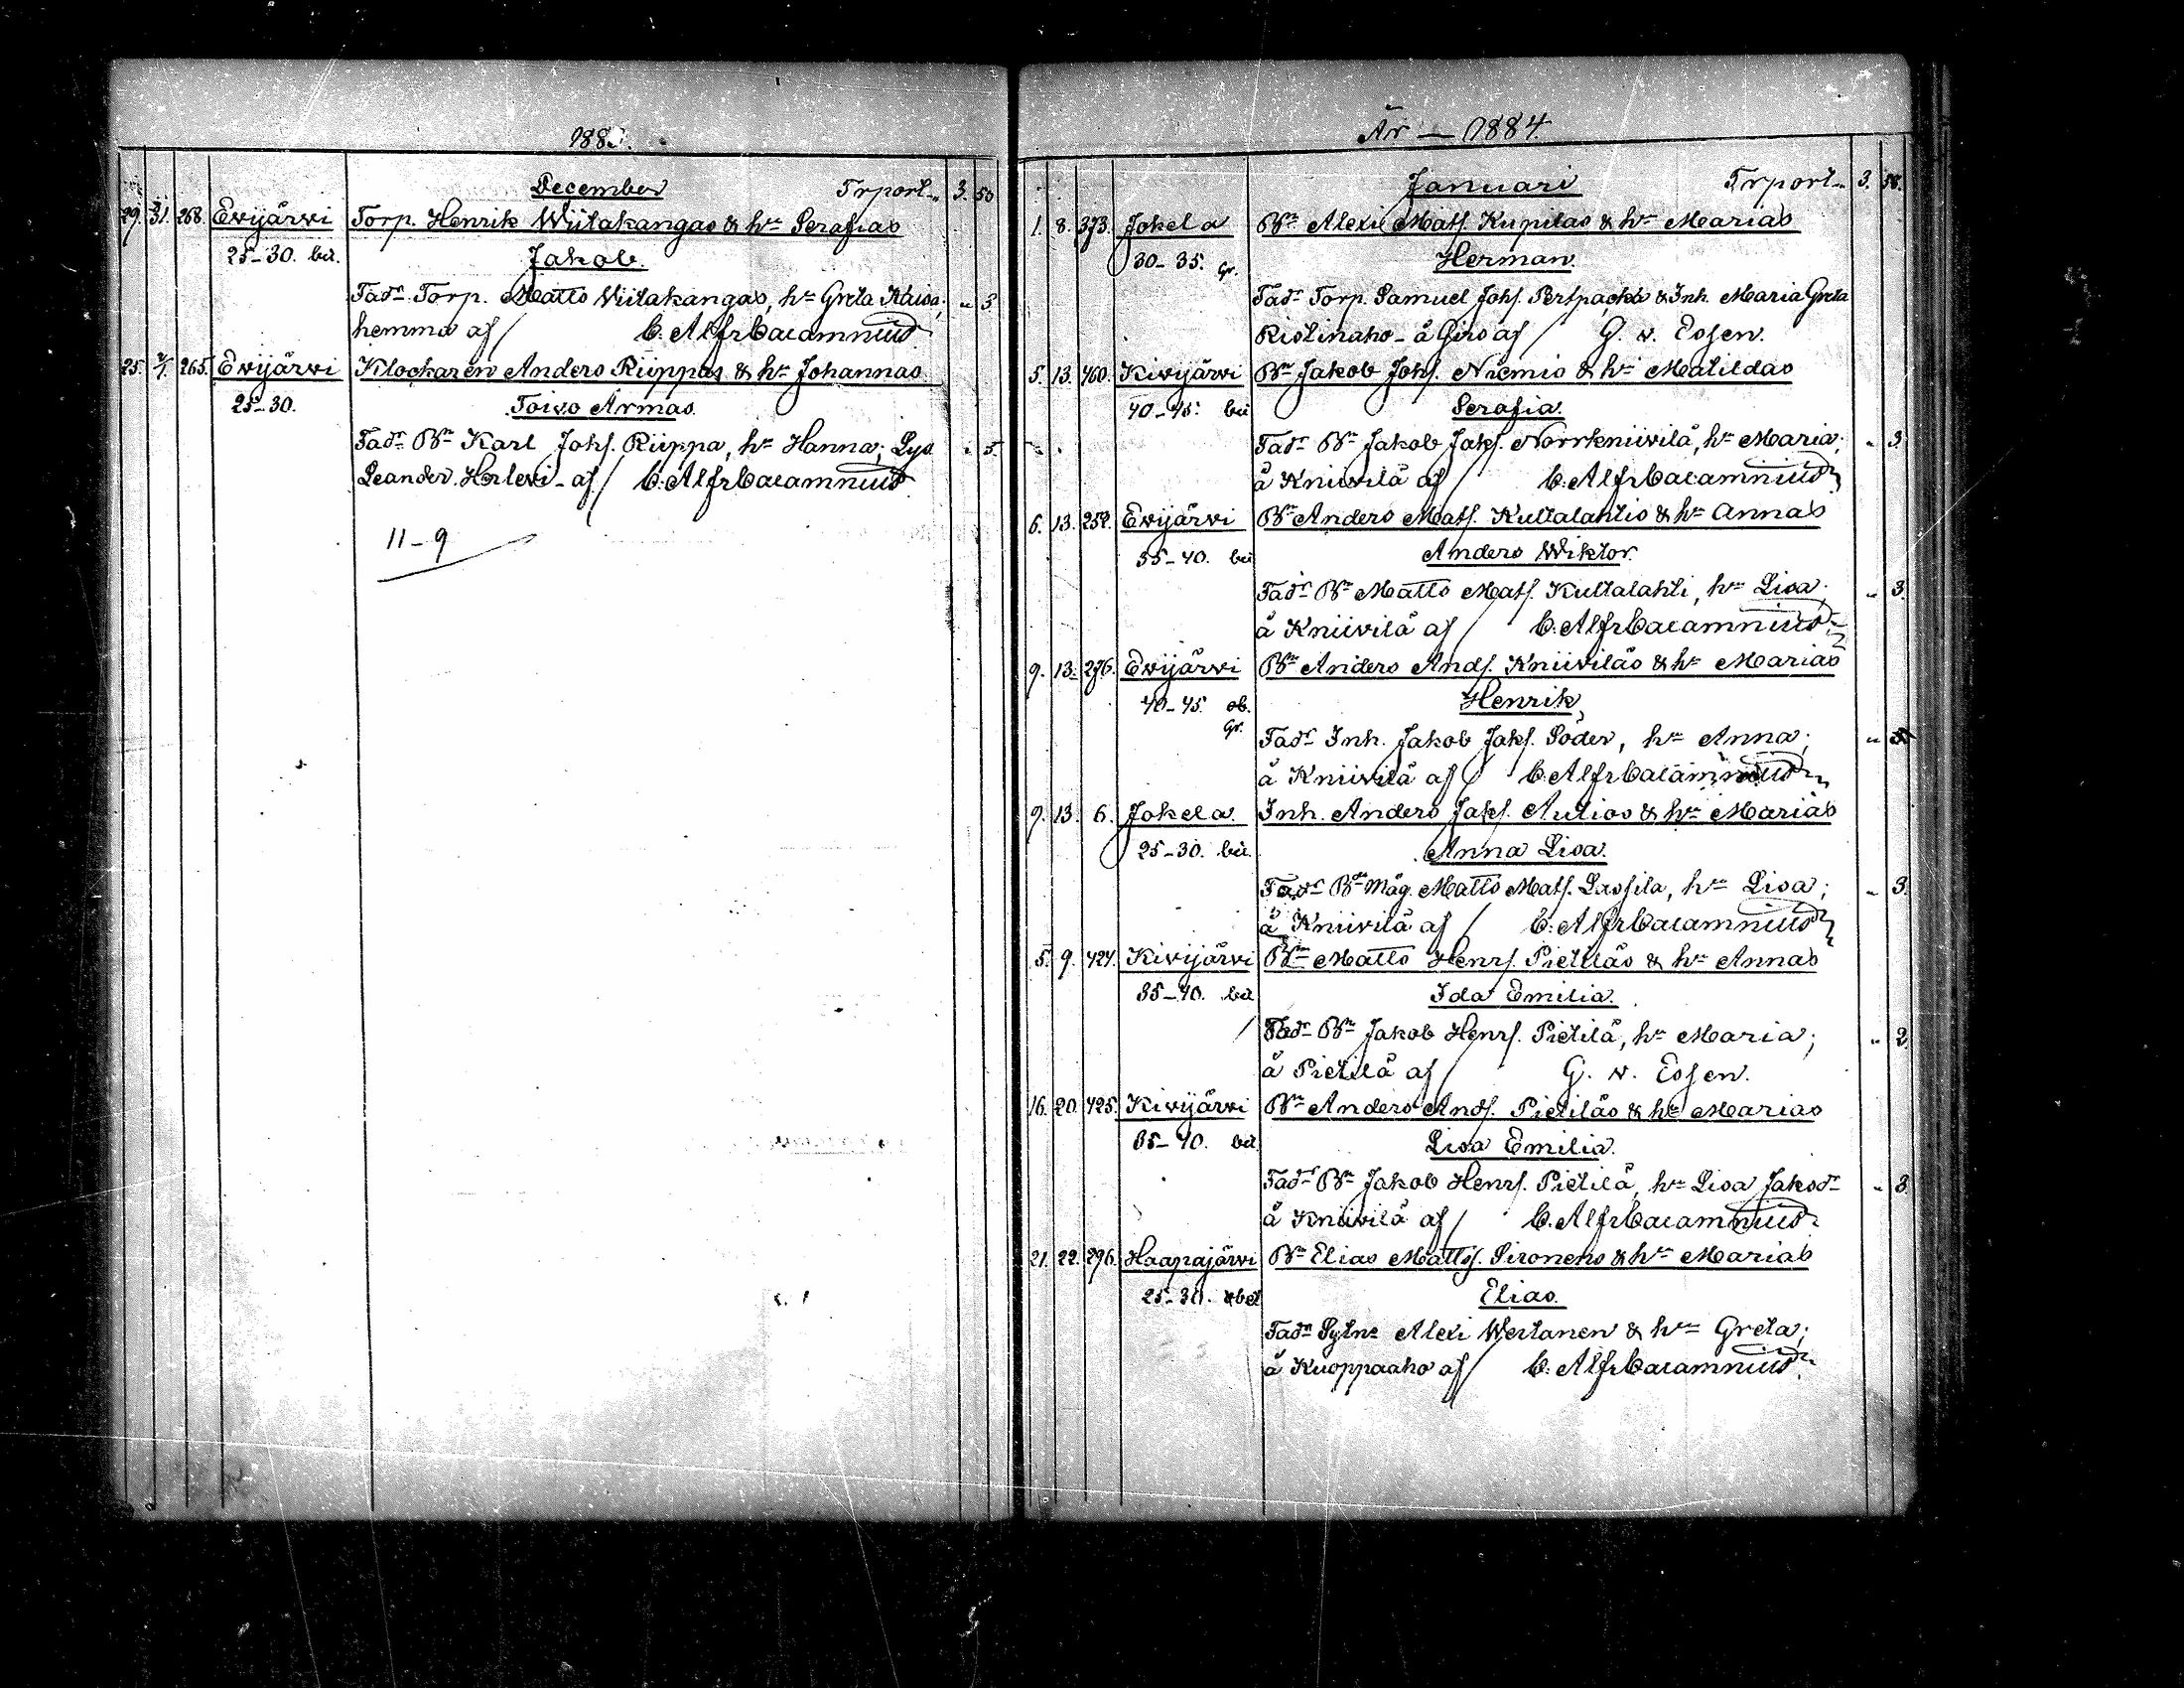 188
December Trport. 3. 50
29. 31. 268. Evijärvi Torp. Henrik Wiitakangas & hu Serafias
25-30. bä. Jakob.
Fadr Torp. Matts Viitakangas, hu Greta Kaisa; " 3
hemma af / C. Alfr Cacamnius
25. 2/1. 265. Evijärvi Klockaren Anders Riippas & hu Johannas
25-30. Toivo Armas.
Fadr Bn Karl Johs. Riippa, hu Hanna; Lys " 5.
Leander Herlevi - af / C. Alfr Cacamnius
11-9
År — 1884.
Januari Trport. 3. 58.
1. 8. 373. Jokela Bn Alexi Mats. Kupilas & hu Marias
30-35. Gr. Herman.
Fadr Torp. Samuel Johs. Pertpacka & Inh. Maria Greta
Ristinaho - å Giro af / G. v. Essen.
5. 13. 460. Kivijärvi Bn Jakob Johs. Niemis & hu Matildas
40-45. bä Serafia.
Fadr Bn Jakob Jaks. Norrkniivilä, hu Maria; " 3
å Kniivilä af / C. Alfr Cacamnius
6. 13. 252. Evijärvi Bn Anders Mats. Kultalahtis & hu Annas
35-40. bä Anders Wiktor.
Fadr Bn Matts Mats. Kultalahti, hu Lisa; " 3.
å Kniivilä af / C. Alfr Cacamnius
9. 13. 276. Evijärvi Bn Anders Ands. Kniiviläs & hu Marias
40-45. ob. Gr. Henrik,
Fadr Inh. Jakob Jaks. Söder, hu Anna; "
å Kniivilä af / C. Alfr Cacamnius
9. 13. 6. Jokela. Inh. Anders Jaks. Autios & hu Marias
25-30. bä. Anna Lisa.
Fadr Bn Måg. Matts Mats. Lassila, hu Lisa; " 3.
å Kniivilä af / C. Alfr Cacamnius
5. 9. 424. Kivijärvi Bn Matts Henrs. Pietiläs & hu Annas
35-40. bä Ida Emilia.
Fadr Bn Jakob Henrs. Pietilä, hu Maria; " 2
å Pietilä af / G. v. Essen.
16. 20. 425. Kivijärvi Bn Anders Ands. Pietiläs & hu Marias
35-40. bä Lisa Emilia.
Fadr Bn Jakob Henrs. Pietilä, hu Lisa Jakodr " 3.
å Kniivilä af / C. Alfr Cacamnius
21. 22. 296. Haapajärvi Bn Elias Matts. Sironens & hu Marias
25-30. Elias.
Fadr Sytn. Alexi Wertanen & hu Greta;
å Kuoppaaho af / C. Alfr Cacamnius